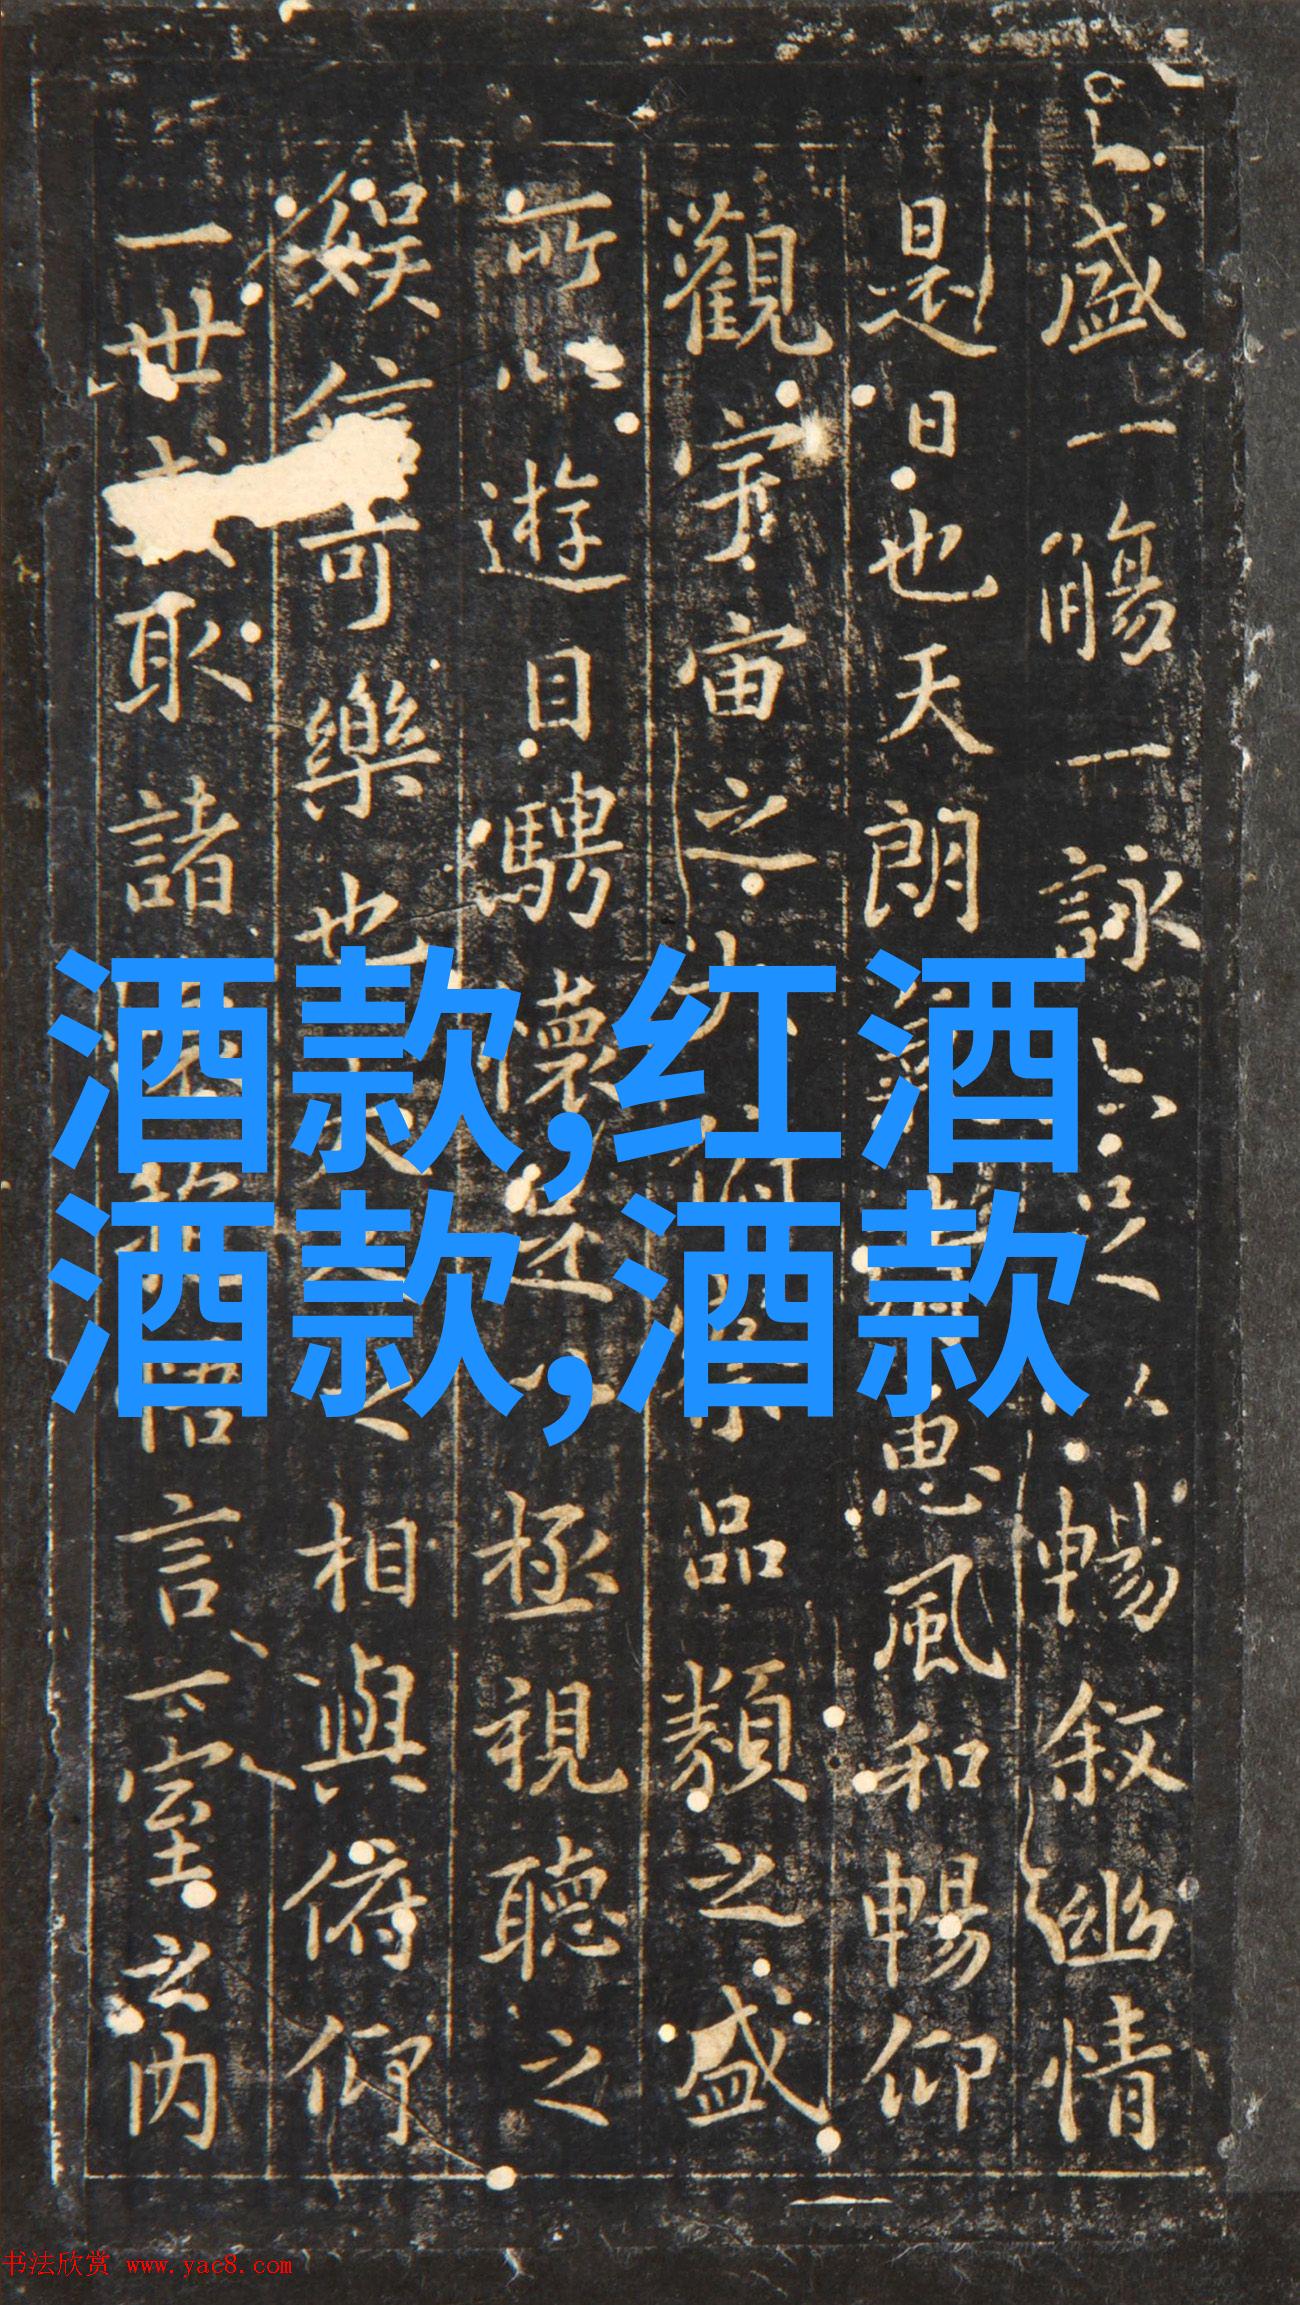 盛一觴一詠亦足以暢叙幽情
是日也天朗惠風和暢仰
觀宇宙之大品類之盛
所以遊目騁懷足以極視聽之
娛信可樂也夫人之相與俯仰
一世或取諸悟言一室之內
酒款,红酒
酒款,酒款
书法欣赏 www.yac8.com